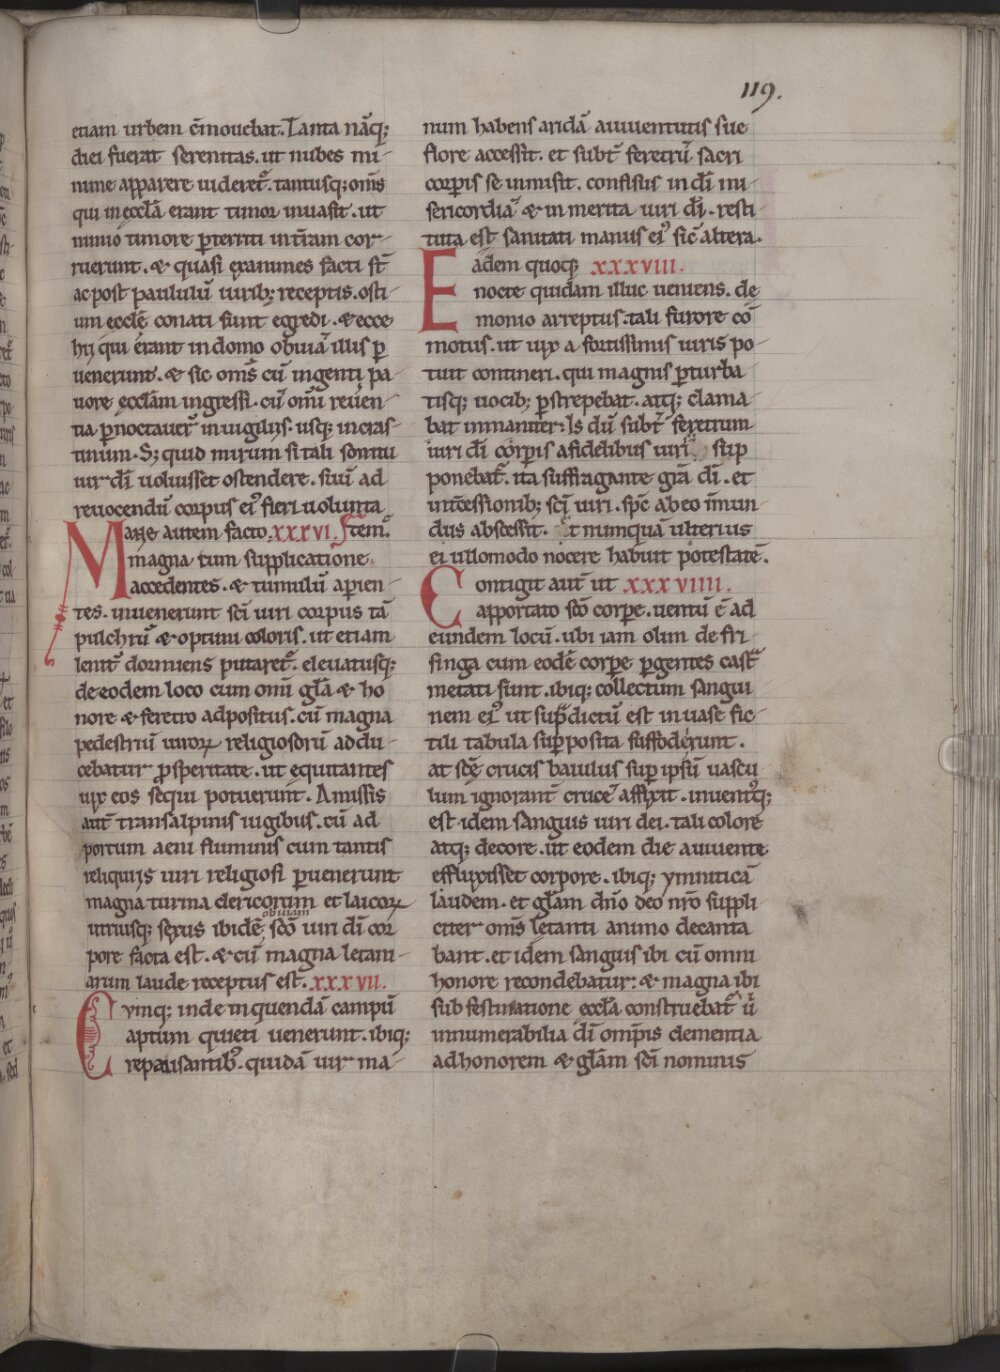 119.
etiam urbem c̄mouebat. Tanta nāq;
diei fuerat serenitas. ut nubes mi-
nime apparere uideret᷑. tantusq; om̄s
qui in ęccl̄a erant timor inuasit. ut
nimio timore p̄territi in t̄ram cor-
ruerunt. & quasi exanimes facti st̄
ac post paululū uirib; receptis. osti-
um ecclę̄ conati sunt egredi. & ecce
hij qui erant in domo obuiā illis p
uenerunt. & sic om̄s cū ingenti pa-
uore ęccl̄am ingressi. cū om̄i reuen-
tia p̄noctauer᷑ in uigilijs. usq; in cras-
tinum. S; quid mirum si tali sonitu
uir dī uoluisset ostendere. suū ad
reuocendū corpus ei᷒ fieri uolunta
Mane autem facto. xxxvi. ſtem᷑.
magna tum supplicatione
accedentes. & tumulū apien-
tes. inuenerunt sc̄i uiri corpus tā
pulchrū & optimi coloris. ut etiam
lenit᷑ dormiens putaret᷑. eleuatusq;
de eodem loco cum om̄i gl̄a & ho
nore & feretro adpositus. cū magna
pedestriū uiroꝝ religiosorū addu-
cebatur p̄speritate. ut equitantes
uix eos sequi potuerunt. Amissis
aut̄ transalpinis iugibus. cū ad
portum aeni fluminis cum tantis
reliquijs uiri religiosi p̄uenerunt
magna turma clericorum et laicoꝝ
obuiam
utriusq; sexus ibidē sc̄o uiri dī cor
pore facta est. & cū magna letani-
arum laude receptus est. xxxvii.
Cvinq; inde in quendā campū
aptum quieti uenerunt. ibiq;
repausantib᷒. quidā uir ma-
num habens aridā auiuentutis sue
flore accessit. et subt᷑ feretrū sacri
corporis se inmisit. confisus in dī mi-
sericordia & in merita uiri dī. resti-
tuta est sanitati manus ei᷒ sic̄ altera.
Eadem quoq; xxxviii.
nocte quidam illuc ueniens. de
monio arreptus. tali furore cō
motus. ut uix a fortissimis uiris po-
tuit contineri. qui magnis p̄turba
tisq; uocib; p̄strepebat. atq; clama-
bat inmaniter. Is dū subt᷑ feretrum
uiri dī corporis a fidelibus uiri sup
ponebat᷑. ita suffragante gr̄a dī. et
int̄cessionib; sc̄i uiri. sp̄c ab eo īmun
dus abscessit. t numquā ulterius
ei ullomodo nocere habuit potestatē.
Contigit aut̄ ut xxxviiii.
apportato sc̄o corpe. uentū ē ad
eundem locū. ubi iam olim de fri-
singa cum eodē corpe p̄gentes cast᷑
metati sunt. ibiq; collectum sangui
nem ei᷒ ut sup̄dictū est in uase fic-
tili tabula supposita suffoderunt.
at sc̄ę crucis baiulus sup ipsū uascu
lum ignorant̄ crucē affixit. inuent᷒q;
est idem sanguis uiri dei. tali colore
atq; decore. ut eodem die auiuente
effluxisset corpore. ibiq; ymniticā
laudem. et gl̄am dn̄o deo nr̄o suppli-
citer om̄s letanti animo decanta
bant. et idem sanguis ibi cū omni
honore recondebatur. & magna ibi
sub festinatione eccl̄a construebat᷑ ū
innumerabilia dī om̄p̄nis clementia
ad honorem & gl̄am sc̄i nominis